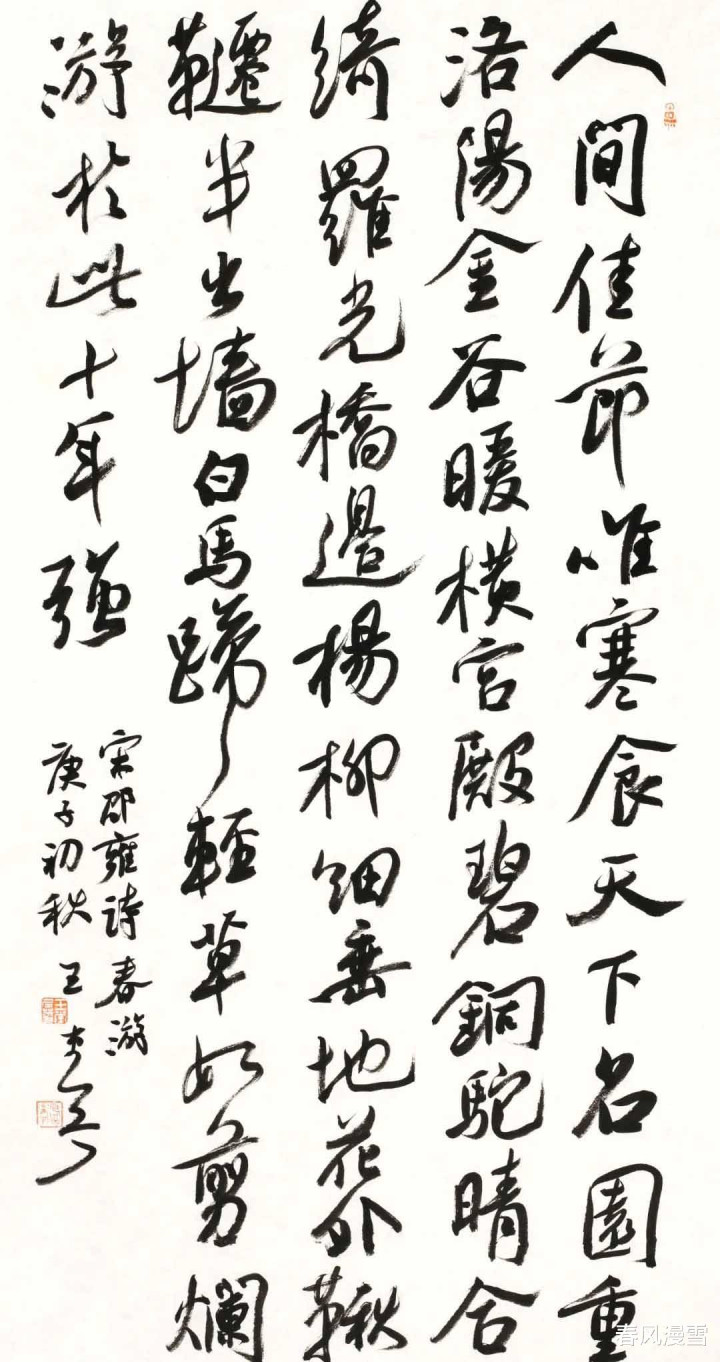 人間佳節唯寒食天下名園重
洛陽金谷暖橫宮殿碧銅駝晴合
綺羅光橋邊楊柳細垂地花外鞦
韆半出墙白馬蹄輕草如剪爛
游於此十年強
宋邵雍詩春游
庚子初秋王
春风漫雪